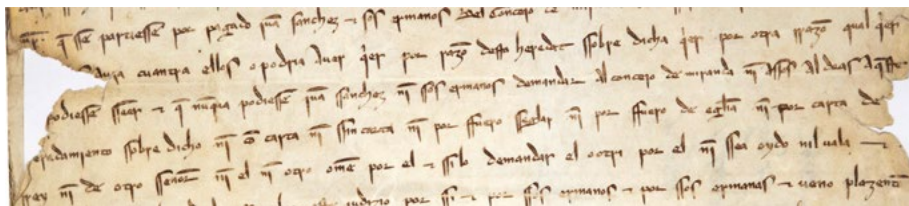 q̃ se partiesse por pagado iuã sanchez ⁊ sos ermanos del conceio de
auya cuantra ellos o podria auer q̉er por razõ dessa heredat ssobre dicha q̉er por otra rrazõ qual q̉er
podiesse sseer ⁊ q̃ nũqua podiesse iuã ssanchez nj̃ sos ermanos demandar al conceio de miranda nj̃ assos aldeas aq̃sse
ssobre dicho nj̃ cõ carta nj̃ ssin carta nj̃ por ffuero sseglar nj̃ por ffuero de eglia nj̃ por carta de
rey nj̃ de otro sennor nj̃ el nj̃ otro ome por el ⁊ ssilo demandar el o otri por el nj̃ ssea oydo nil uala
por ssi ⁊ por ssos ermanos ⁊ por ssos ermanas ⁊ ueno